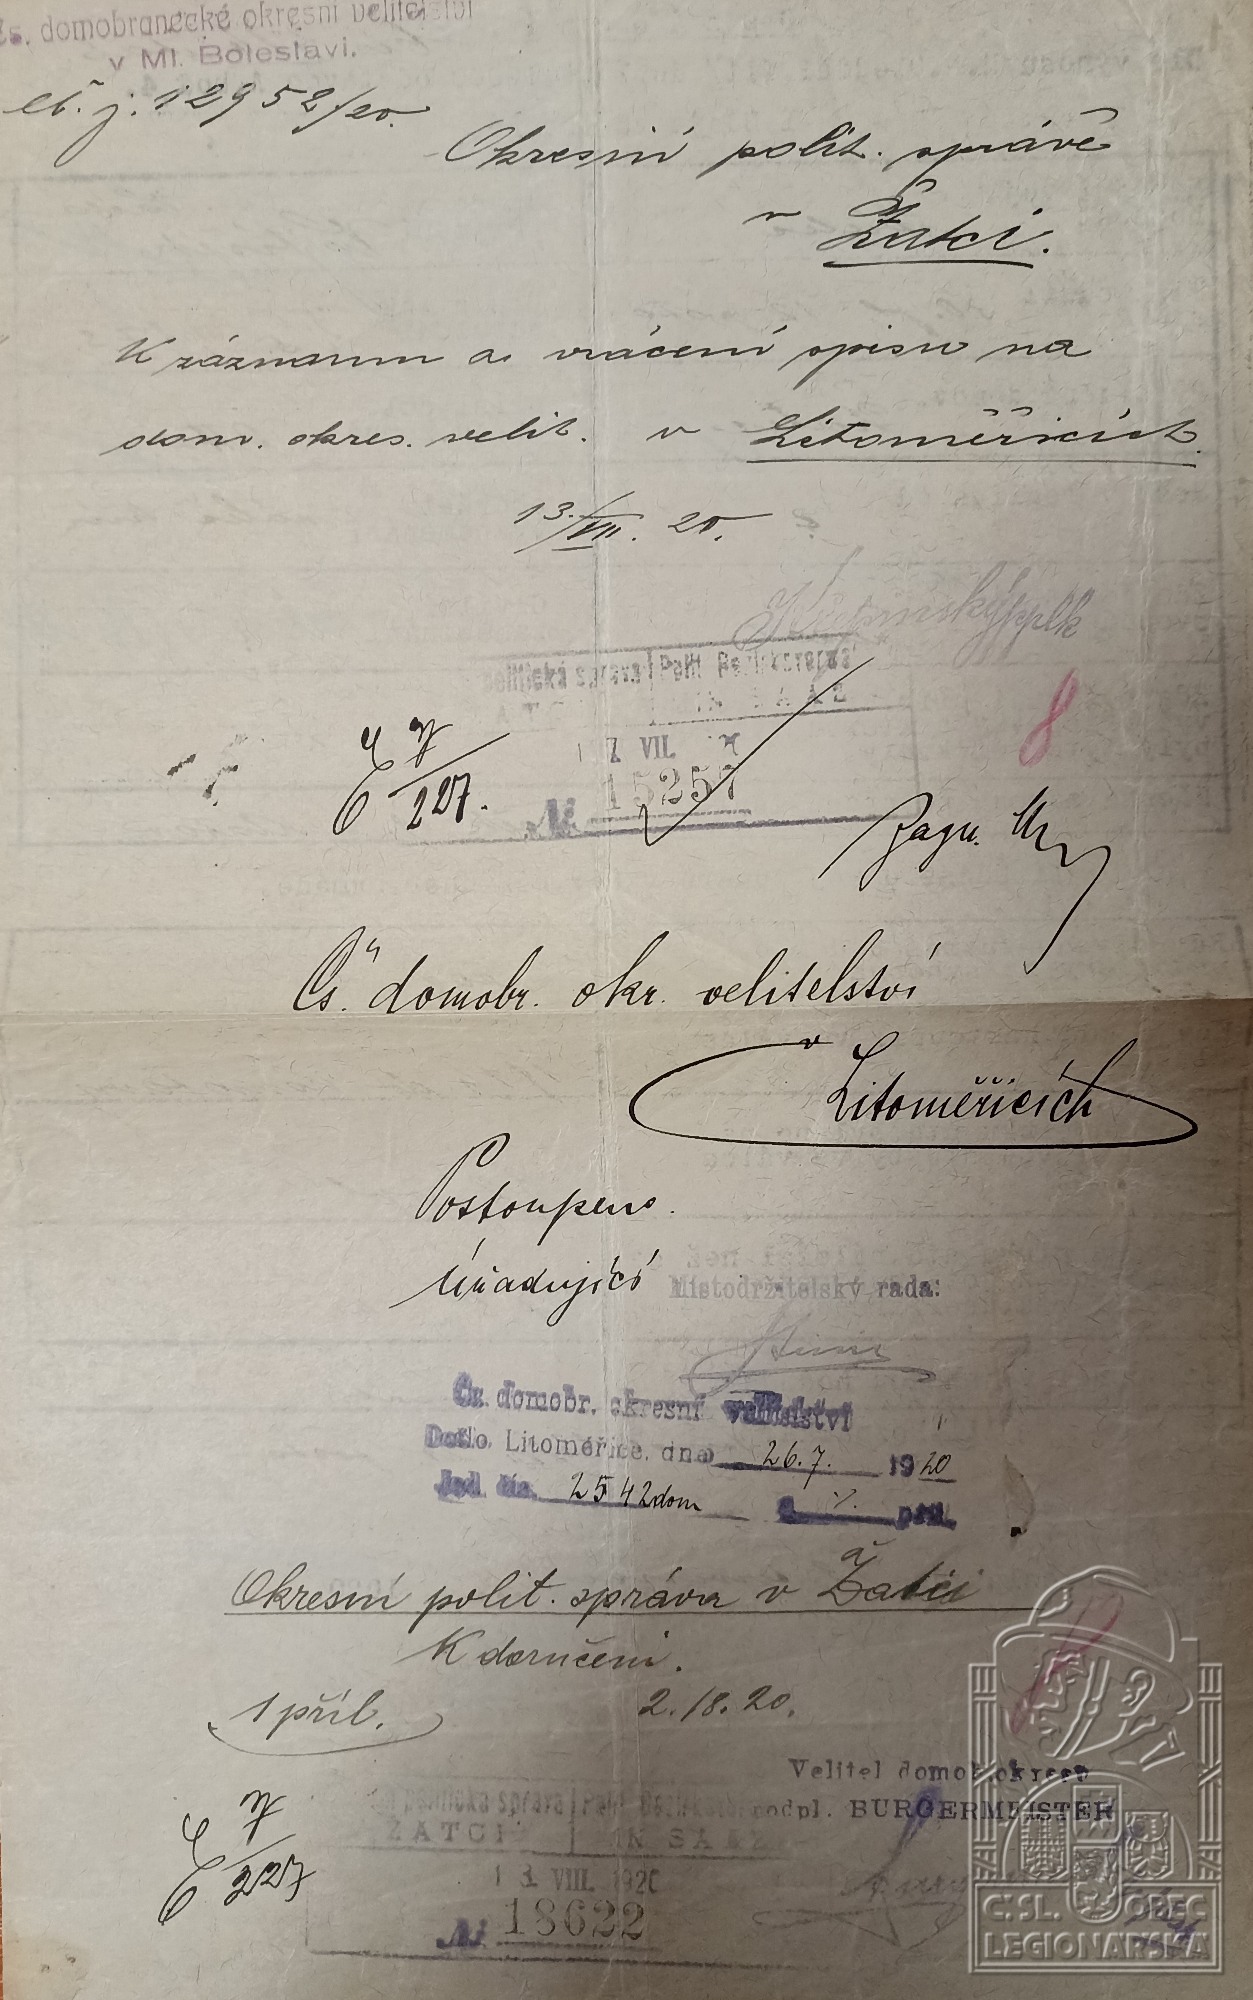 Čs. domobranecké okresní velitelství
v Ml. Boleslavi.
čt. j. 12952/20.
Okresní polit. správě
v Žatci.
K záznamu a vrácení spisu na
dom. okres. velit. v Litoměřicích.
13./VII. 20.
pplk
politická správa Polit. Bezirksverwa
IN SAAZ
VII.
№ 15257
8
E 7/227.
Čs. domobr. okr. velitelství
v Litoměřicích
Postoupeno.
Úřadující Místodržitelský rada:
Čs. domobr. okresní velitelství
Došlo Litoměřice, dne 26.7. 1920
Jed. čís. 2542dom s %. příl.
Okresní polit. správa v Žatci
K doručení.
1 příl. 2./8. 20.
Velitel domob okresu
podpl. BURGERMEISTER
E 7/227
politická správa Polit. Bezirks
ŽATCI IN SAAZ
VIII. 1920
№ 18622
Č:SL. OBEC
LEGIONÁŘSKÁ